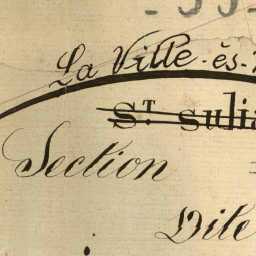 La Ville-ès-
St Sulia
Section
Dite